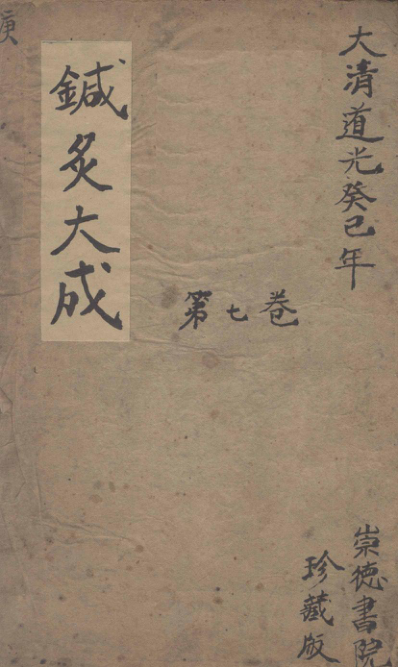 大清道光癸巳年
崇德書院
珍藏版
第七卷
鍼灸大成
庚